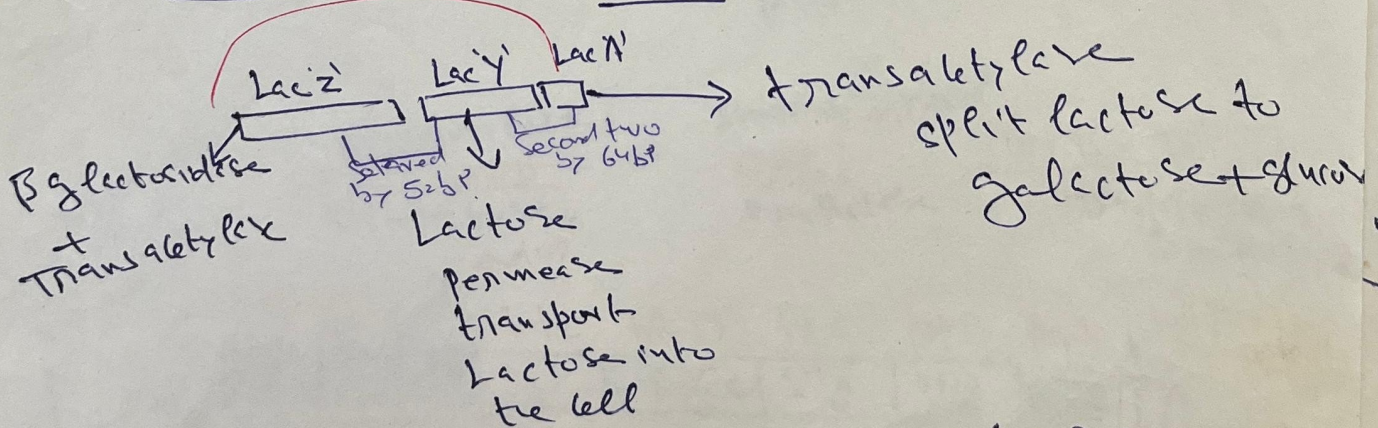 Lac'Z' Lac'Y' Lac'A'
transacetylase
split lactose to
galactose + glucos
β glactosidase
+
Transacetylase
by 52bp
Second two
by 64bp
Lactose
permease
transport
Lactose into
the cell